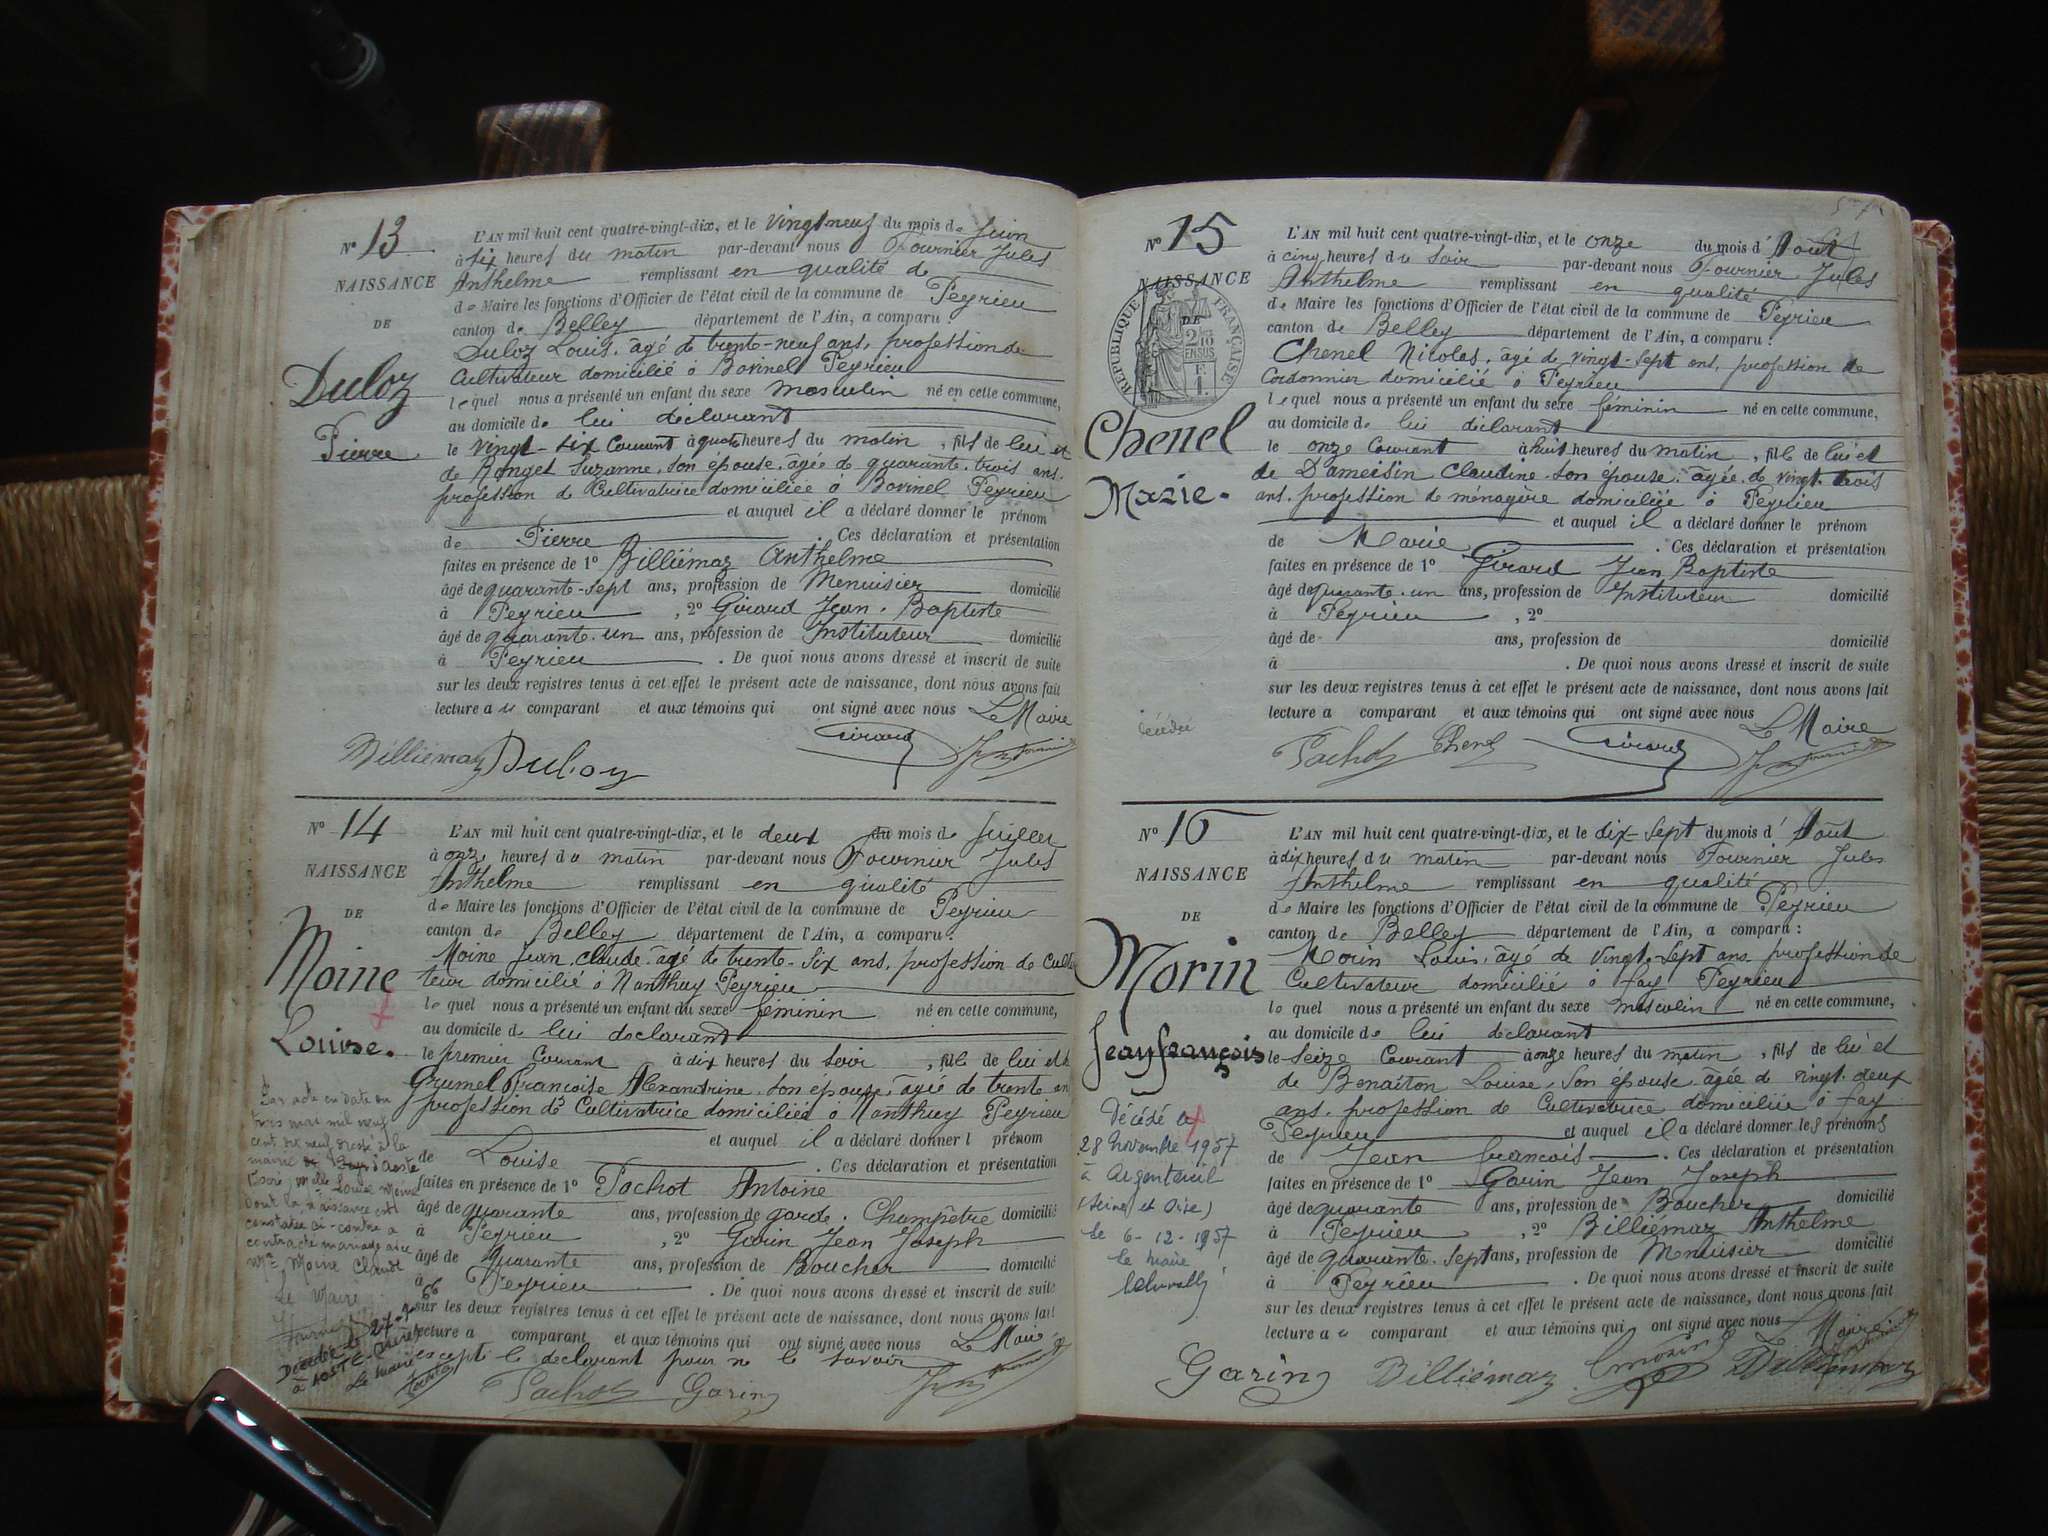 N° 13
NAISSANCE
DE
Duloz
Pierre
L'AN mil huit cent quatre-vingt-dix, et le vingt neuf du mois de Juin
à six heures du matin par-devant nous Fournier Jules
Anthelme remplissant en qualité de
de Maire les fonctions d'Officier de l'état civil de la commune de Peyrieu
canton de Belley département de l'Ain, a comparu :
Duloz Louis, âgé de trente-neuf ans, profession de
Cultivateur domicilié à Bovinel Peyrieu
lequel nous a présenté un enfant du sexe masculin né en cette commune,
au domicile de lui déclarant
le vingt-six Courant à quatre heures du matin, fils de lui et
de Suzanne, son épouse, âgée de quarante-trois ans,
profession de Cultivatrice domiciliée à Bovinel Peyrieu
et auquel il a déclaré donner le prénom
de Pierre. Ces déclaration et présentation
faites en présence de 1° Billiémaz Anthelme
âgé de quarante-sept ans, profession de Menuisier domicilié
à Peyrieu, 2° Girard Jean-Baptiste
âgé de quarante-un ans, profession de Instituteur domicilié
à Peyrieu. De quoi nous avons dressé et inscrit de suite
sur les deux registres tenus à cet effet le présent acte de naissance, dont nous avons fait
lecture au comparant et aux témoins qui ont signé avec nous Le Maire
Billiémaz Duloz Girard
N° 14
NAISSANCE
DE
Moine
Louise.
L'AN mil huit cent quatre-vingt-dix, et le deux du mois de Juillet
à onze heures du matin par-devant nous Fournier Jules
Anthelme remplissant en qualité
de Maire les fonctions d'Officier de l'état civil de la commune de Peyrieu
canton de Belley département de l'Ain, a comparu :
Moine Jean Claude, âgé de trente-six ans, profession de Culti
teur domicilié à Nanthuy Peyrieu
lequel nous a présenté un enfant du sexe féminin né en cette commune,
au domicile de lui déclarant
le premier Courant à dix heures du soir, fille de lui et
Grumel Françoise Alexandrine, son épouse, âgée de trente an
profession de Cultivatrice domiciliée à Nanthuy Peyrieu
et auquel il a déclaré donner l prénom
de Louise. Ces déclaration et présentation
faites en présence de 1° Pachot Antoine
âgé de quarante ans, profession de garde-Champêtre domicilié
à Peyrieu, 2° Garin Jean Joseph
âgé de quarante ans, profession de Boucher domicilié
à Peyrieu. De quoi nous avons dressé et inscrit de suite
sur les deux registres tenus à cet effet le présent acte de naissance, dont nous avons fait
lecture a comparant et aux témoins qui ont signé avec nous Le Maire
excepté le déclarant pour ne le savoir
Pachot Garin
Par acte en date du
trois mai mil neuf
cent dix neuf dressé à la
mairie de
Melle Louise Moine
dont la naissance est
constatée ci-contre a
contracté mariage avec
Mr Moine Claude
Le Maire
Décédée le 27-7
à AOSTE
Le maire
N° 15
NAISSANCE
DE
RÉPUBLIQUE FRANÇAISE
2/10 EN SUS
F. 1.
Chenel
Marie.
L'AN mil huit cent quatre-vingt-dix, et le onze du mois d'Août
à cinq heures du soir par-devant nous Fournier Jules
Anthelme remplissant en qualité
de Maire les fonctions d'Officier de l'état civil de la commune de Peyrieu
canton de Belley département de l'Ain, a comparu :
Chenel Nicolas, âgé de vingt-sept ans, profession de
Cordonnier domicilié à Peyrieu
lequel nous a présenté un enfant du sexe féminin né en cette commune,
au domicile de lui déclarant
le onze Courant à huit heures du matin, fille de lui et
de Dameisin Claudine son épouse, âgée de vingt-trois
ans, profession de ménagère domiciliée à Peyrieu
et auquel il a déclaré donner le prénom
de Marie. Ces déclaration et présentation
faites en présence de 1° Girard Jean Baptiste
âgé de quarante-un ans, profession de Instituteur domicilié
à Peyrieu, 2°
âgé de ans, profession de domicilié
à . De quoi nous avons dressé et inscrit de suite
sur les deux registres tenus à cet effet le présent acte de naissance, dont nous avons fait
lecture a comparant et aux témoins qui ont signé avec nous Le Maire
Pachot Chenel Girard
N° 16
NAISSANCE
DE
Morin
Jean françois
L'AN mil huit cent quatre-vingt-dix, et le dix-sept du mois d'Août
à dix heures du matin par-devant nous Fournier Jules
Anthelme remplissant en qualité
de Maire les fonctions d'Officier de l'état civil de la commune de Peyrieu
canton de Belley département de l'Ain, a comparu :
Morin Louis, âgé de vingt-sept ans profession de
Cultivateur domicilié à fay Peyrieu
lequel nous a présenté un enfant du sexe masculin né en cette commune,
au domicile de lui déclarant
le seize Courant à onze heures du matin, fils de lui et
de Benaiton Louise, son épouse âgée de vingt-deux
ans, profession de Cultivatrice domiciliée à fay
Peyrieu et auquel il a déclaré donner les prénoms
de Jean francois. Ces déclaration et présentation
faites en présence de 1° Garin Jean Joseph
âgé de quarante ans, profession de Boucher domicilié
à Peyrieu, 2° Billiémaz Anthelme
âgé de quarante-sept ans, profession de Menuisier domicilié
à Peyrieu. De quoi nous avons dressé et inscrit de suite
sur les deux registres tenus à cet effet le présent acte de naissance, dont nous avons fait
lecture a comparant et aux témoins qui ont signé avec nous Le Maire
Garin Billiémaz Morin
Décédé le
28 novembre 1957
à Argenteuil
(Seine et Oise)
Le 6-12-1957
Le maire